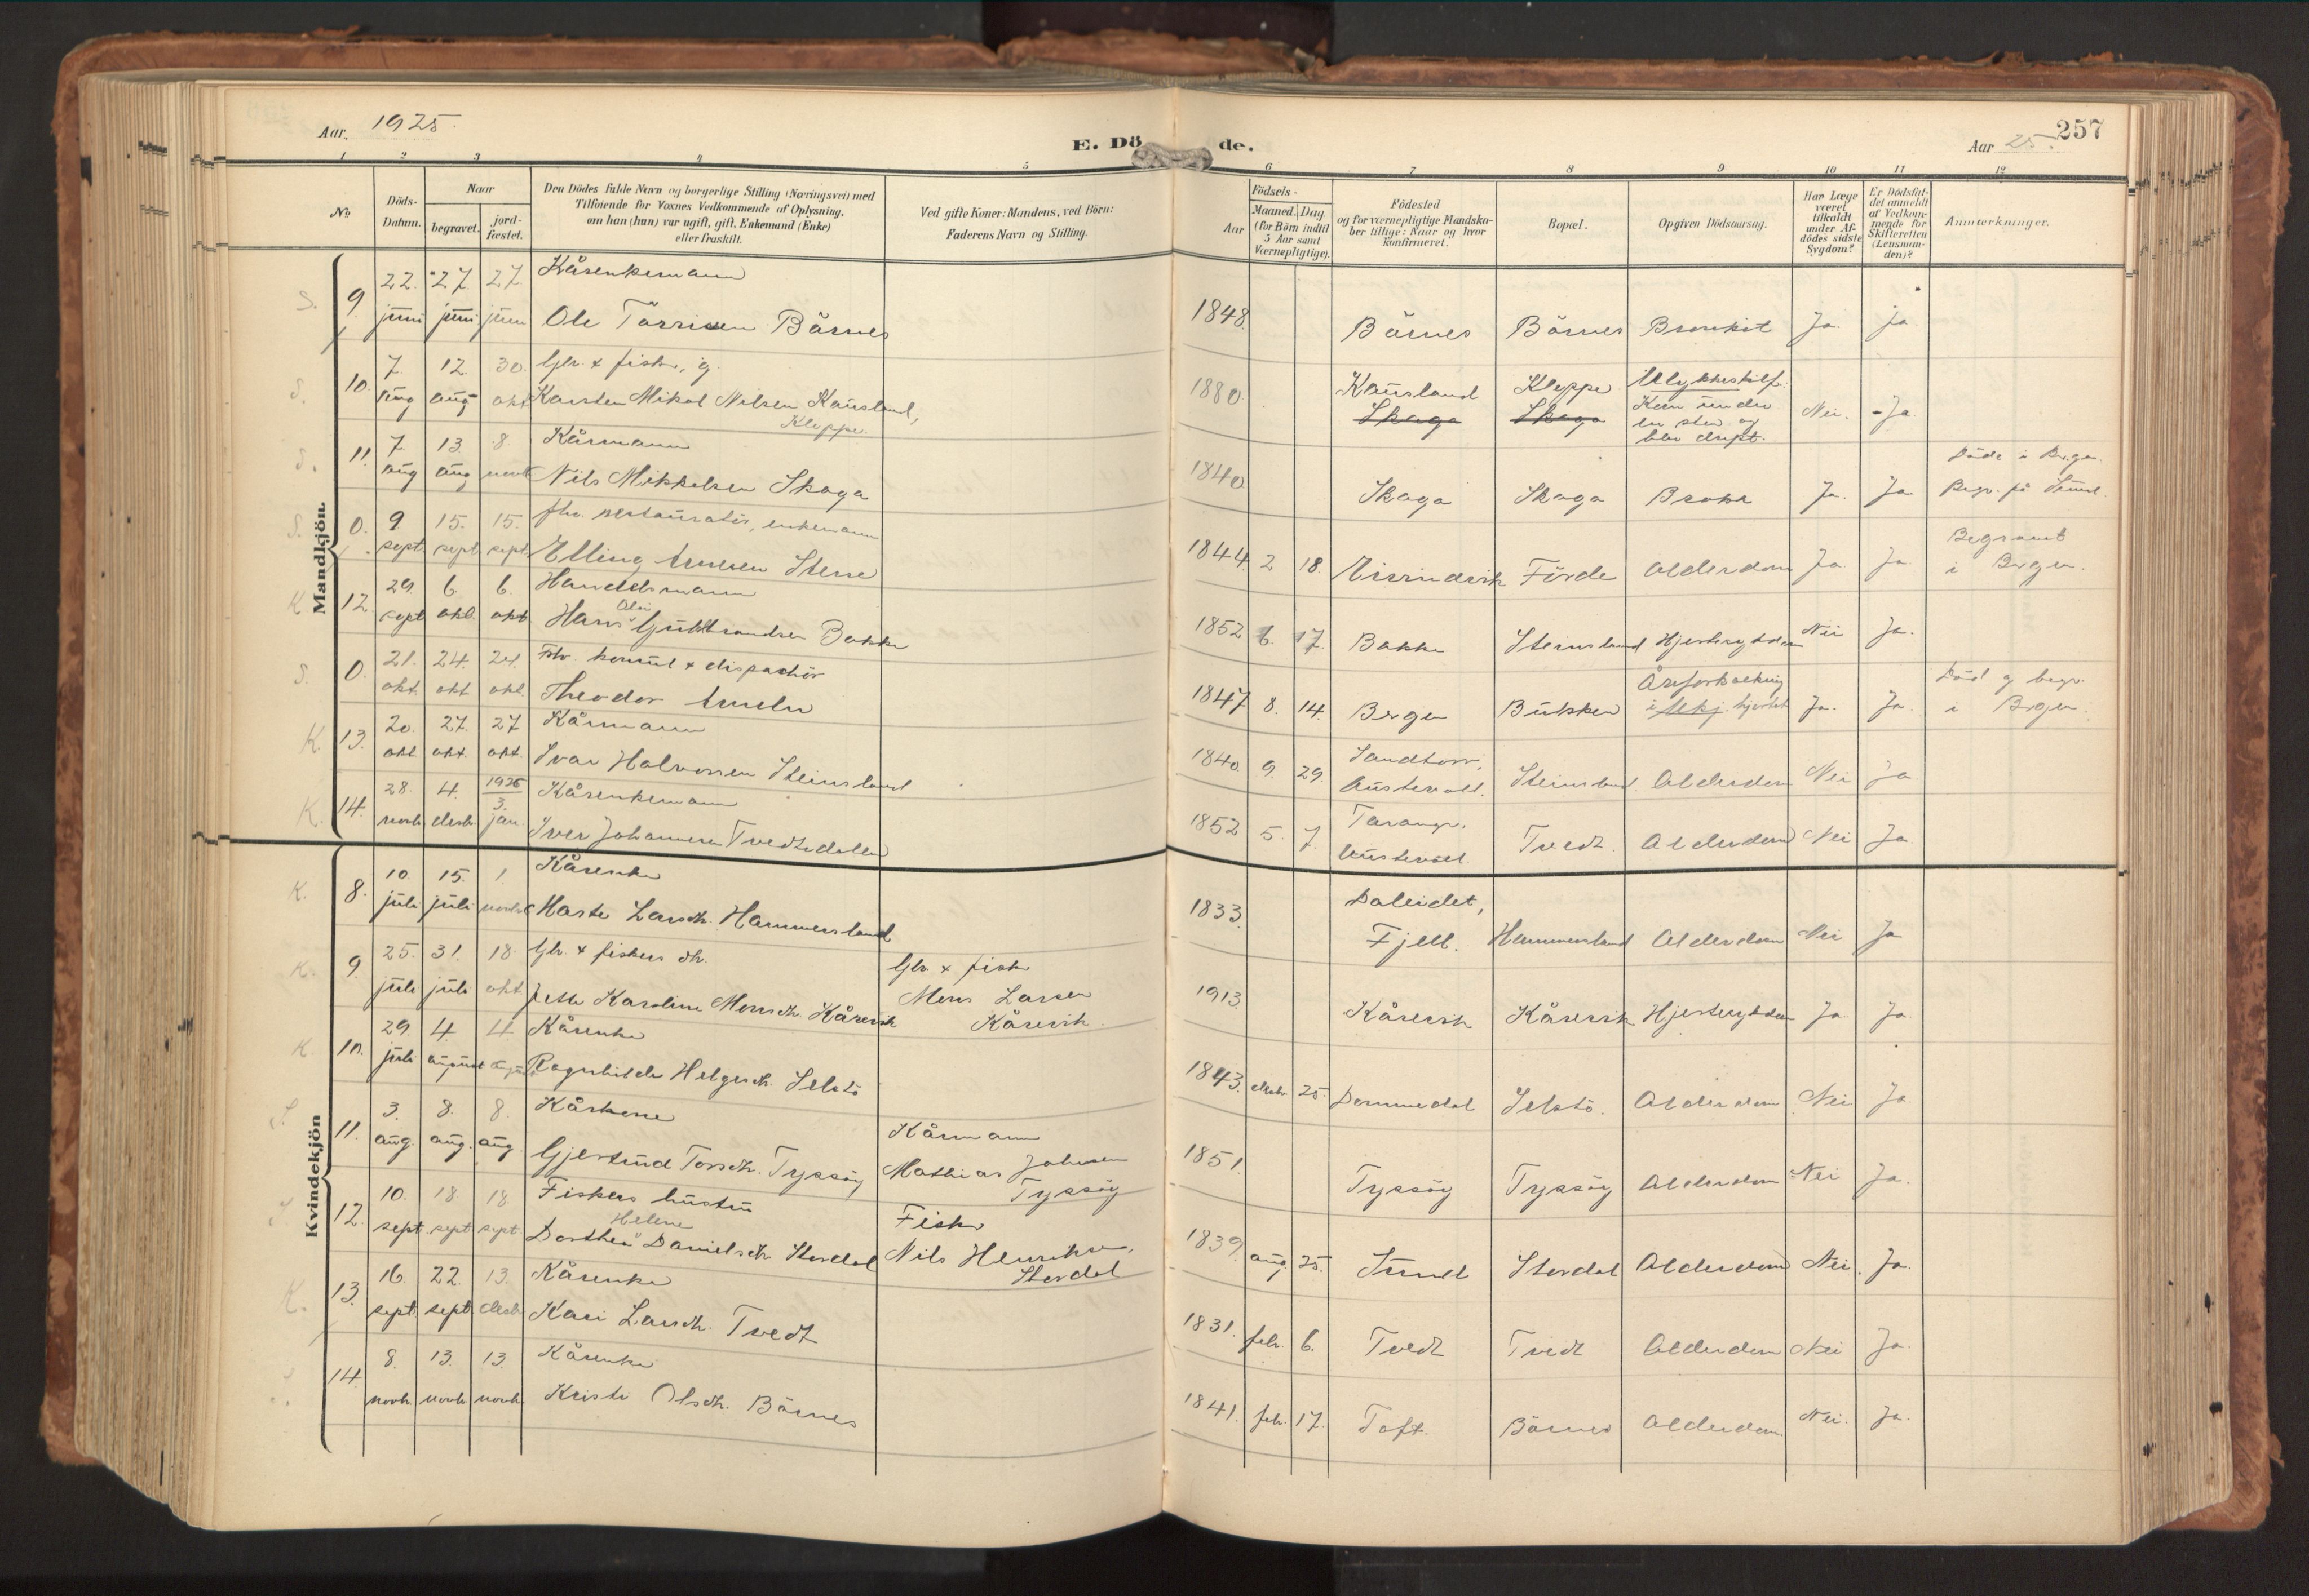 Aar. 1925.
E. Dö de.
Aar 25.
257
1 2 3 4 5 6 7 8 9 10 11 12
No
Döds-Datum.
Naar
begravet.
jord-fæstet.
Den Dödes fulde Navn og borgerlige Stilling (Næringsvei) med
Tilföiende for Voxnes Vedkommende af Oplysning,
om han (hun) var ugift, gift, Enkemand (Enke)
eller fraskilt.
Ved gifte Koner: Mandens, ved Börn:
Faderens Navn og Stilling.
Födsels-
Aar
Maaned. Dag.
(for Börn indtil
5 Aar samt
Værnepligtige).
Födested
og for værnepligtige Mandska-
ber tillige: Naar og hvor
konfirmeret.
Bopæl.
Opgiven Dödsaarsag.
Har Læge
været
tilkaldt
under Af-
dödes sidste
Sygdom?
Er Dödsfal-
det anmeldt
af Vedkom-
mende for
Skifteretten
(Lensman-
den)?
Anmærkninger.
Mandkjön.
S. 9. 22. juni 27. juni 27 juni Kårenkemann
Ole Törrisen Börnes 1848. Börnes Börnes Bronkit Ja. ja.
S. 10. 7. aug 12. aug 30. okt Gbr. & fisk., g.
Karsten Mikal Nilsen Kausland,
Kleppe. 1880. Kausland Skaga Kleppe Skaga Ulykkestilf.
Kom under
en sten og
blev drept. Nei. Ja.
S. 11. 7. aug 13. aug 8. novb Kårmann
Nils Mikkelsen Skaga 1840. Skaga Skaga Brokk Ja. Ja Döde i Bergen.
Begr. på Sund.
S. 0. 9 sept. 15. sept. 15. sept. fhv. restauratör, enkemann
Elling Stene 1844. 2 18. Eivindvik Förde Alderdom Ja. Ja. Begravet
i Bergen.
K 12. 29. sept 6. okt. 6. okt. Handelsmann
Hans Gulbrandsen Bakke 1852 6. 17. Bakke Steinsland Hjertesykdom Nei Ja.
S. 0. 21. okt. 24. okt. 24. okt. Fhv. konsul & dispachör
Theodor 1847 8. 14. Bergen Bukken Åreforkalkning
i hjertet Ja. Ja. Död og begr.
i Bergen.
K. 13. 20. okt. 27. okt. 27 okt. Kårmann
Ivar Halvorsen Steinsland 1840. 9. 29. Sandtorv,
Austevoll. Steinsland. Alderdom Nei Ja.
K. 14. 28. novb. 4. desb. 1926
3. jan. Kårenkemann
Iver Johannesen Tvedtedalen 1852 5. 7. Tvedt. Alderdom Nei Ja.
Austevoll.
Kvindekjön
K. 8. 10. juli 15. juli 1. novb. Kårenke
Marte Larsdtr. Hammersland 1833. Daleidet,
Fjell. Hammersland Alderdom Nei Ja
K. 9. 25. juli 31. juli 18. okt. Gbr. & fiskers dtr.
Jette Karoline Monsdtr. Kårevik Gbr. & fisk
Mons Larsen
Kårevik. 1913. Kårevik Kårevik Hjertesykdom Ja. Ja.
K. 10. 29. juli 4. august 4. august Kårenke
Ragnhilde Helgesdtr. Selstö 1843. desb. 25. Dommedal Selstö. Alderdom Nei Ja.
S. 11. 3. aug. 8. aug. 8. aug. Kårkone
Gjertrud Torsdtr. Tyssöy Kårmann
Mathias Johnsen
Tyssöy 1851. Tyssöy Tyssöy Alderdom Nei Ja.
S. 12. 10. sept. 18. sept 18 sept. Fiskers hustru
Helene
Dorthea Danielsdtr. Stordal Fisker
Nils Henriksen,
Stordal 1839. aug. 25. Sund Stordal Alderdom Nei. Ja.
K. 13. 16. sept. 22. sept. 13. desb. Kårenke
Kari Larsdtr. Tvedt 1831. febr. 6. Tvedt Tvedt Alderdom Nei Ja.
14. 8. novb. 13. novb. 13. novb. Kårenke
Kristi Olsdtr. Börnes 1841. feb. 17. Toft. Börnes Alderdom. Nei. Ja.